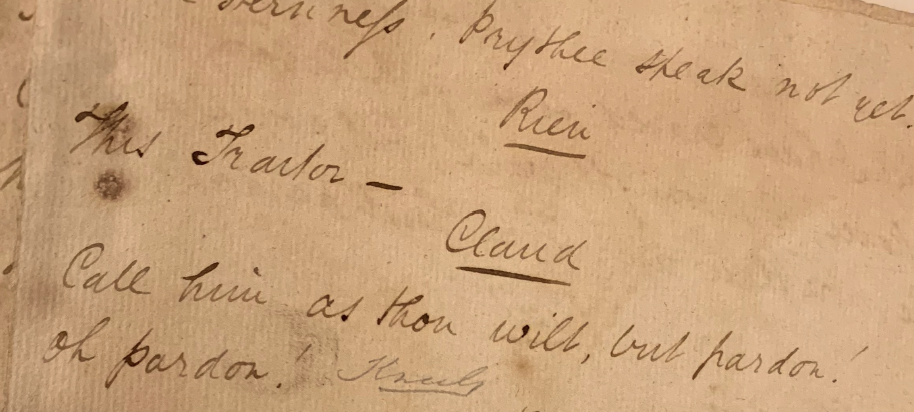 Prythee speak not yet.
Rien
This Traitor —
Claud
Call him as thou wilt, but pardon!
oh pardon! Kneels